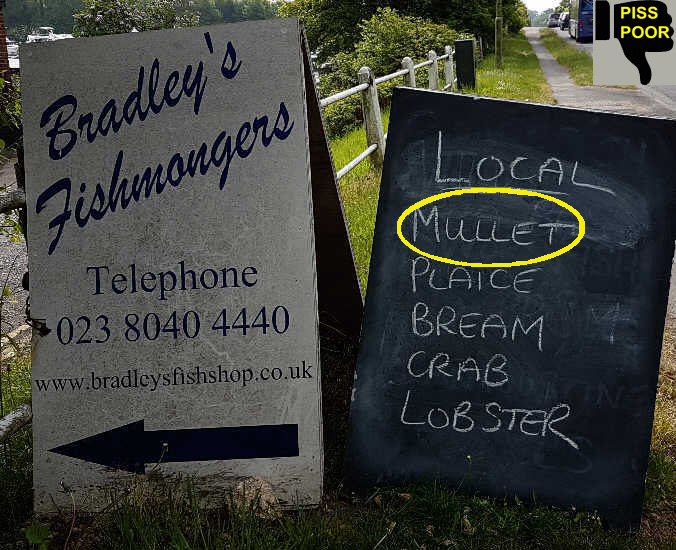 Bradley's
Fishmongers
Telephone
023 8040 4440
www.bradleysfishshop.co.uk
LOCAL
MULLET
PLAICE
BREAM
CRAB
LOBSTER
PISS
POOR